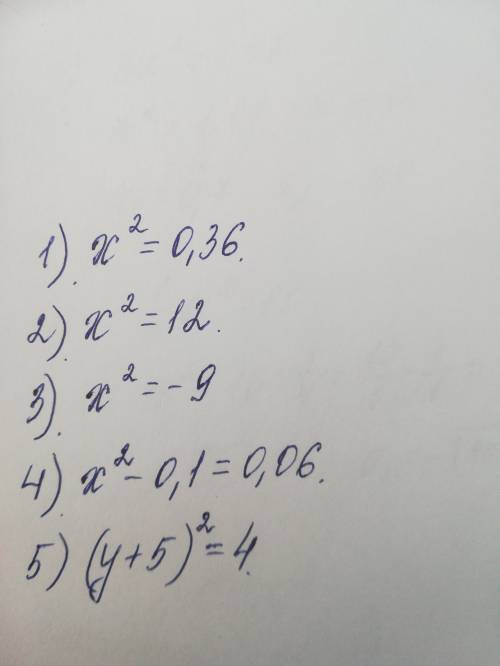 1). x² = 0,36.
2). x² = 12.
3). x² = - 9
4) x² - 0,1 = 0,06.
5) (y + 5)² = 4.